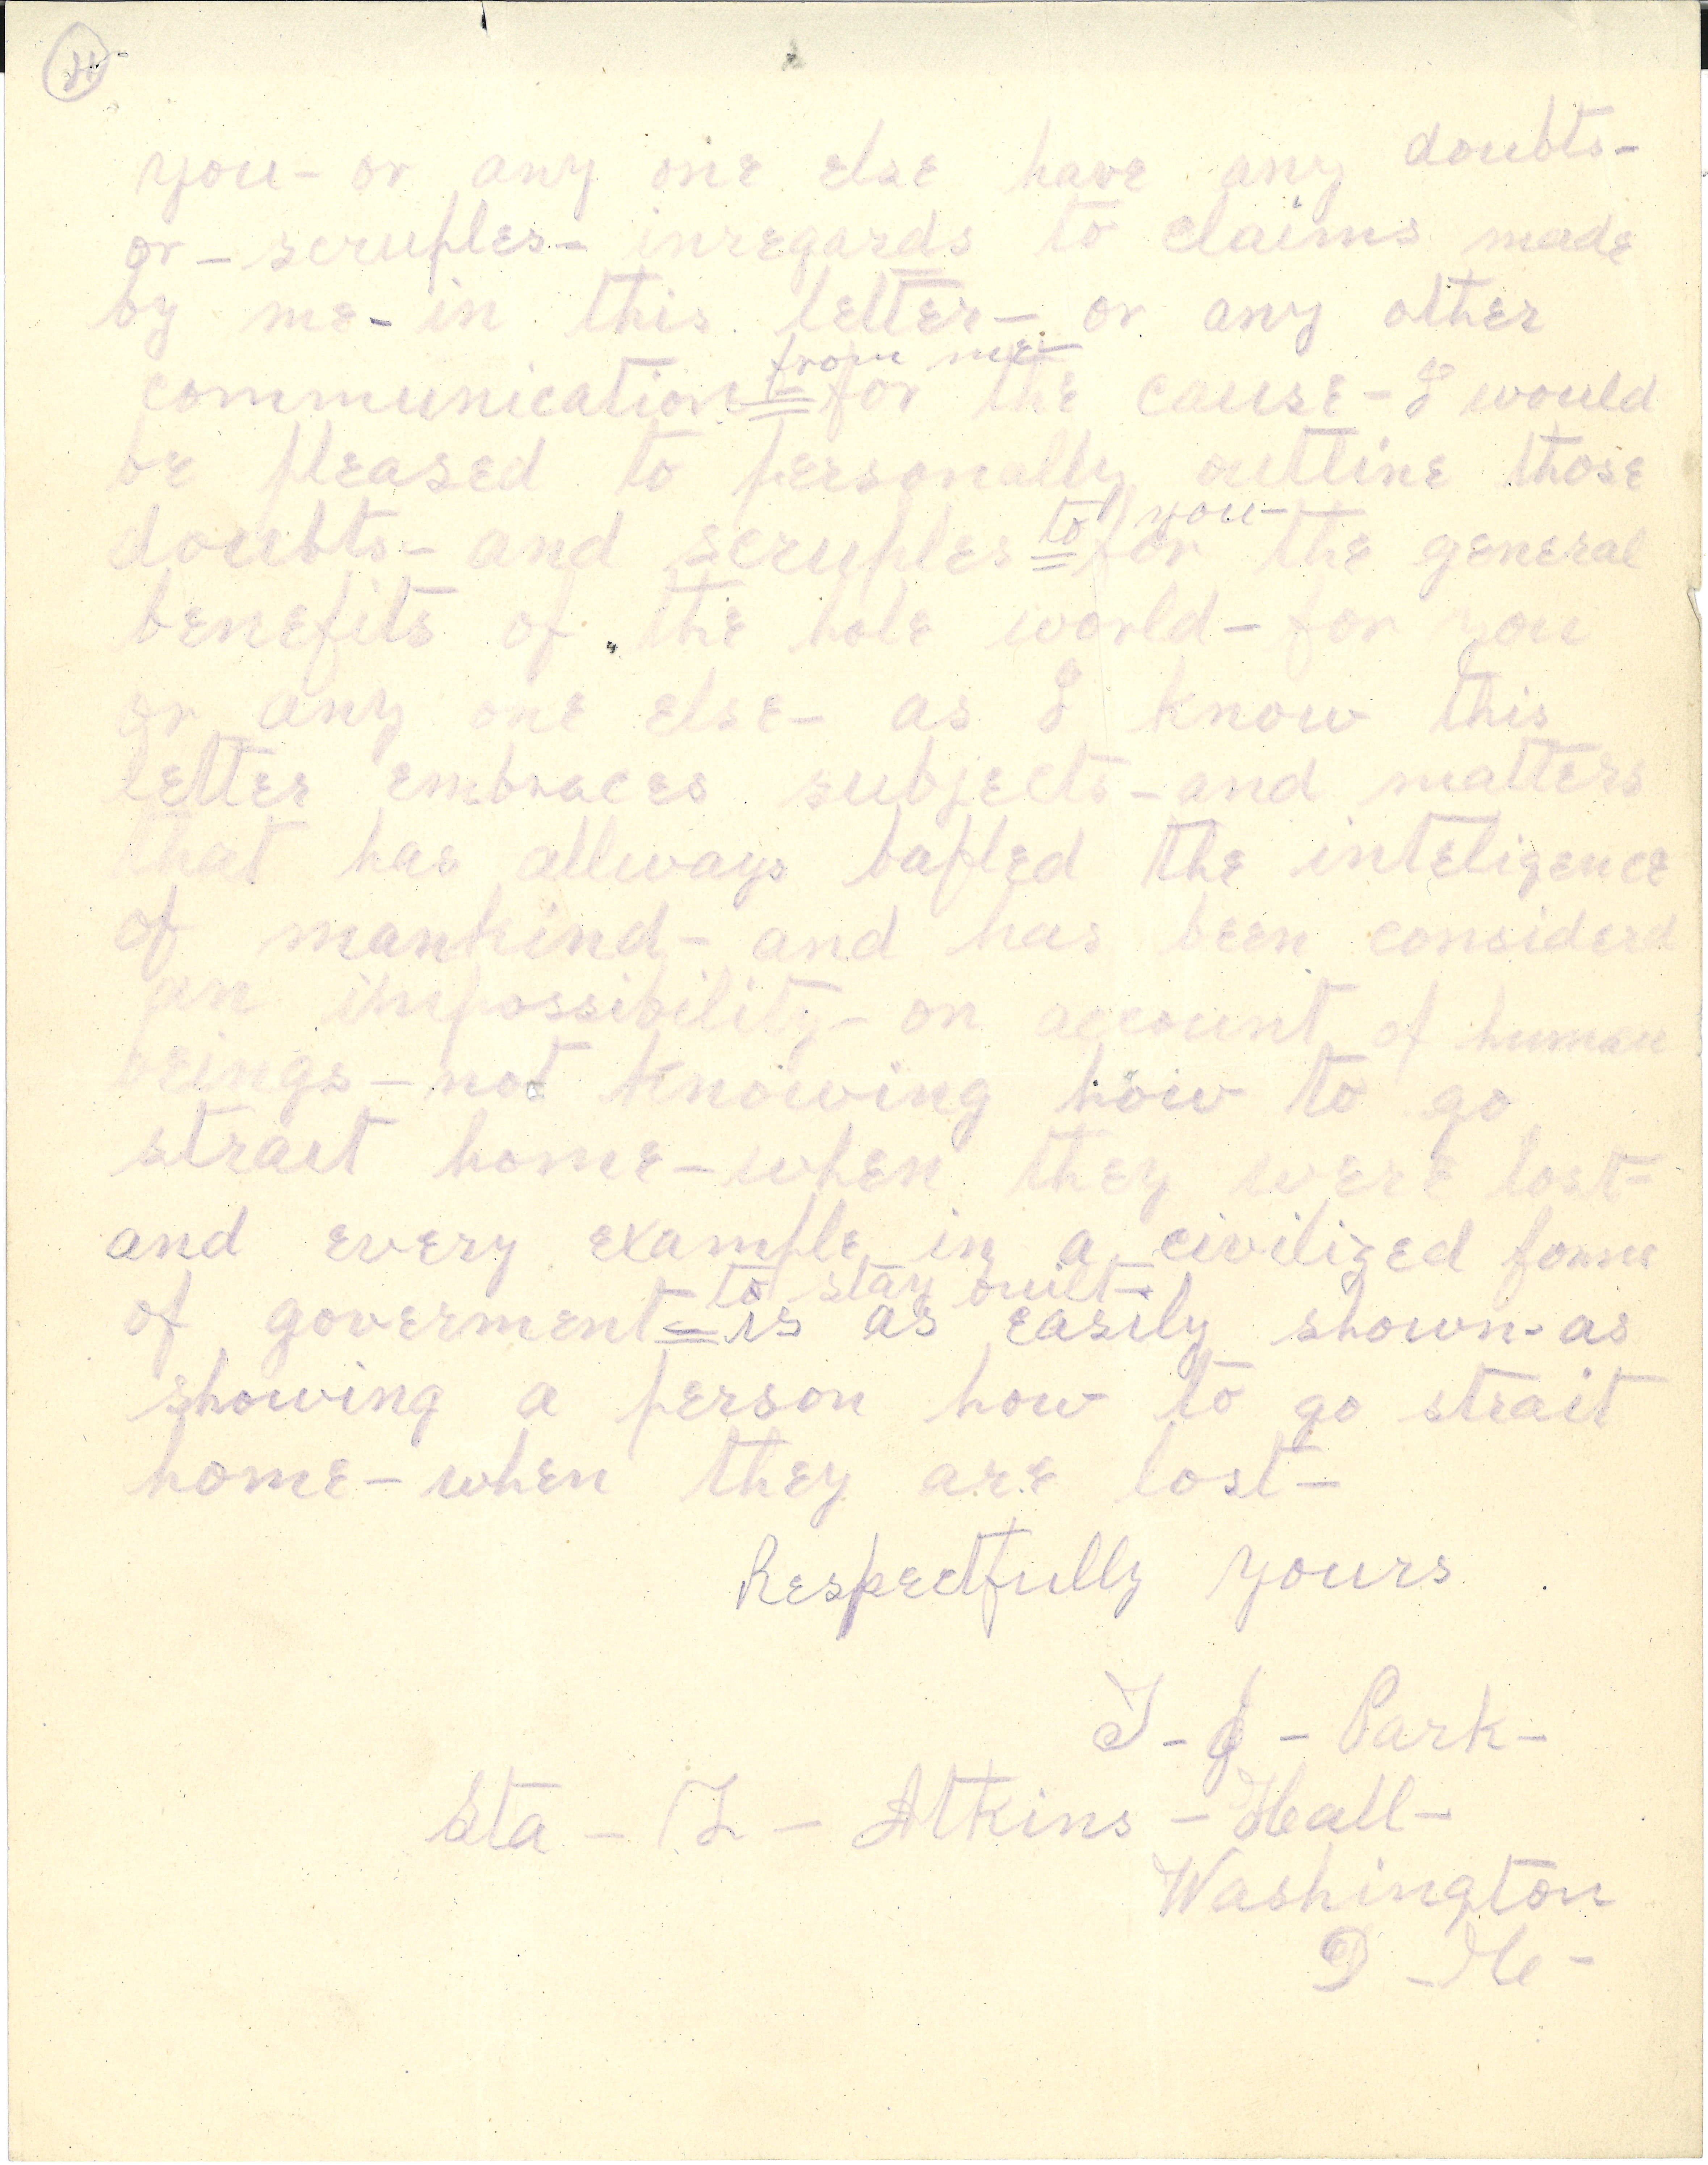 you - or any one else have any doubts -
or - scruples - inregards to claims made
by me - in this letter - or any other
from me -
communication = for the cause - I would
be pleased to personally outline those
to you -
doubts - and scruples = for the general
benefits of the hole world - for you
or any one else - as I know this
letter embraces subjects - and matters
that has allways bafled the inteligence
of mankind - and has been considerd
an impossibility - on account of human
beings - not knowing how to go
strait home - when they were lost -
and every example in a civilized form
to stay quilt -
of goverment = is as easily shown - as
showing a person how to go strait
home - when they are lost -
Respectfully yours
T - J - Park -
Sta - - Atkins - Hall -
Washington
D - C -